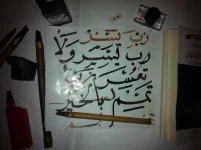 رب يسر
رب تيسر ولا
تعسر رب
تمم بالخير